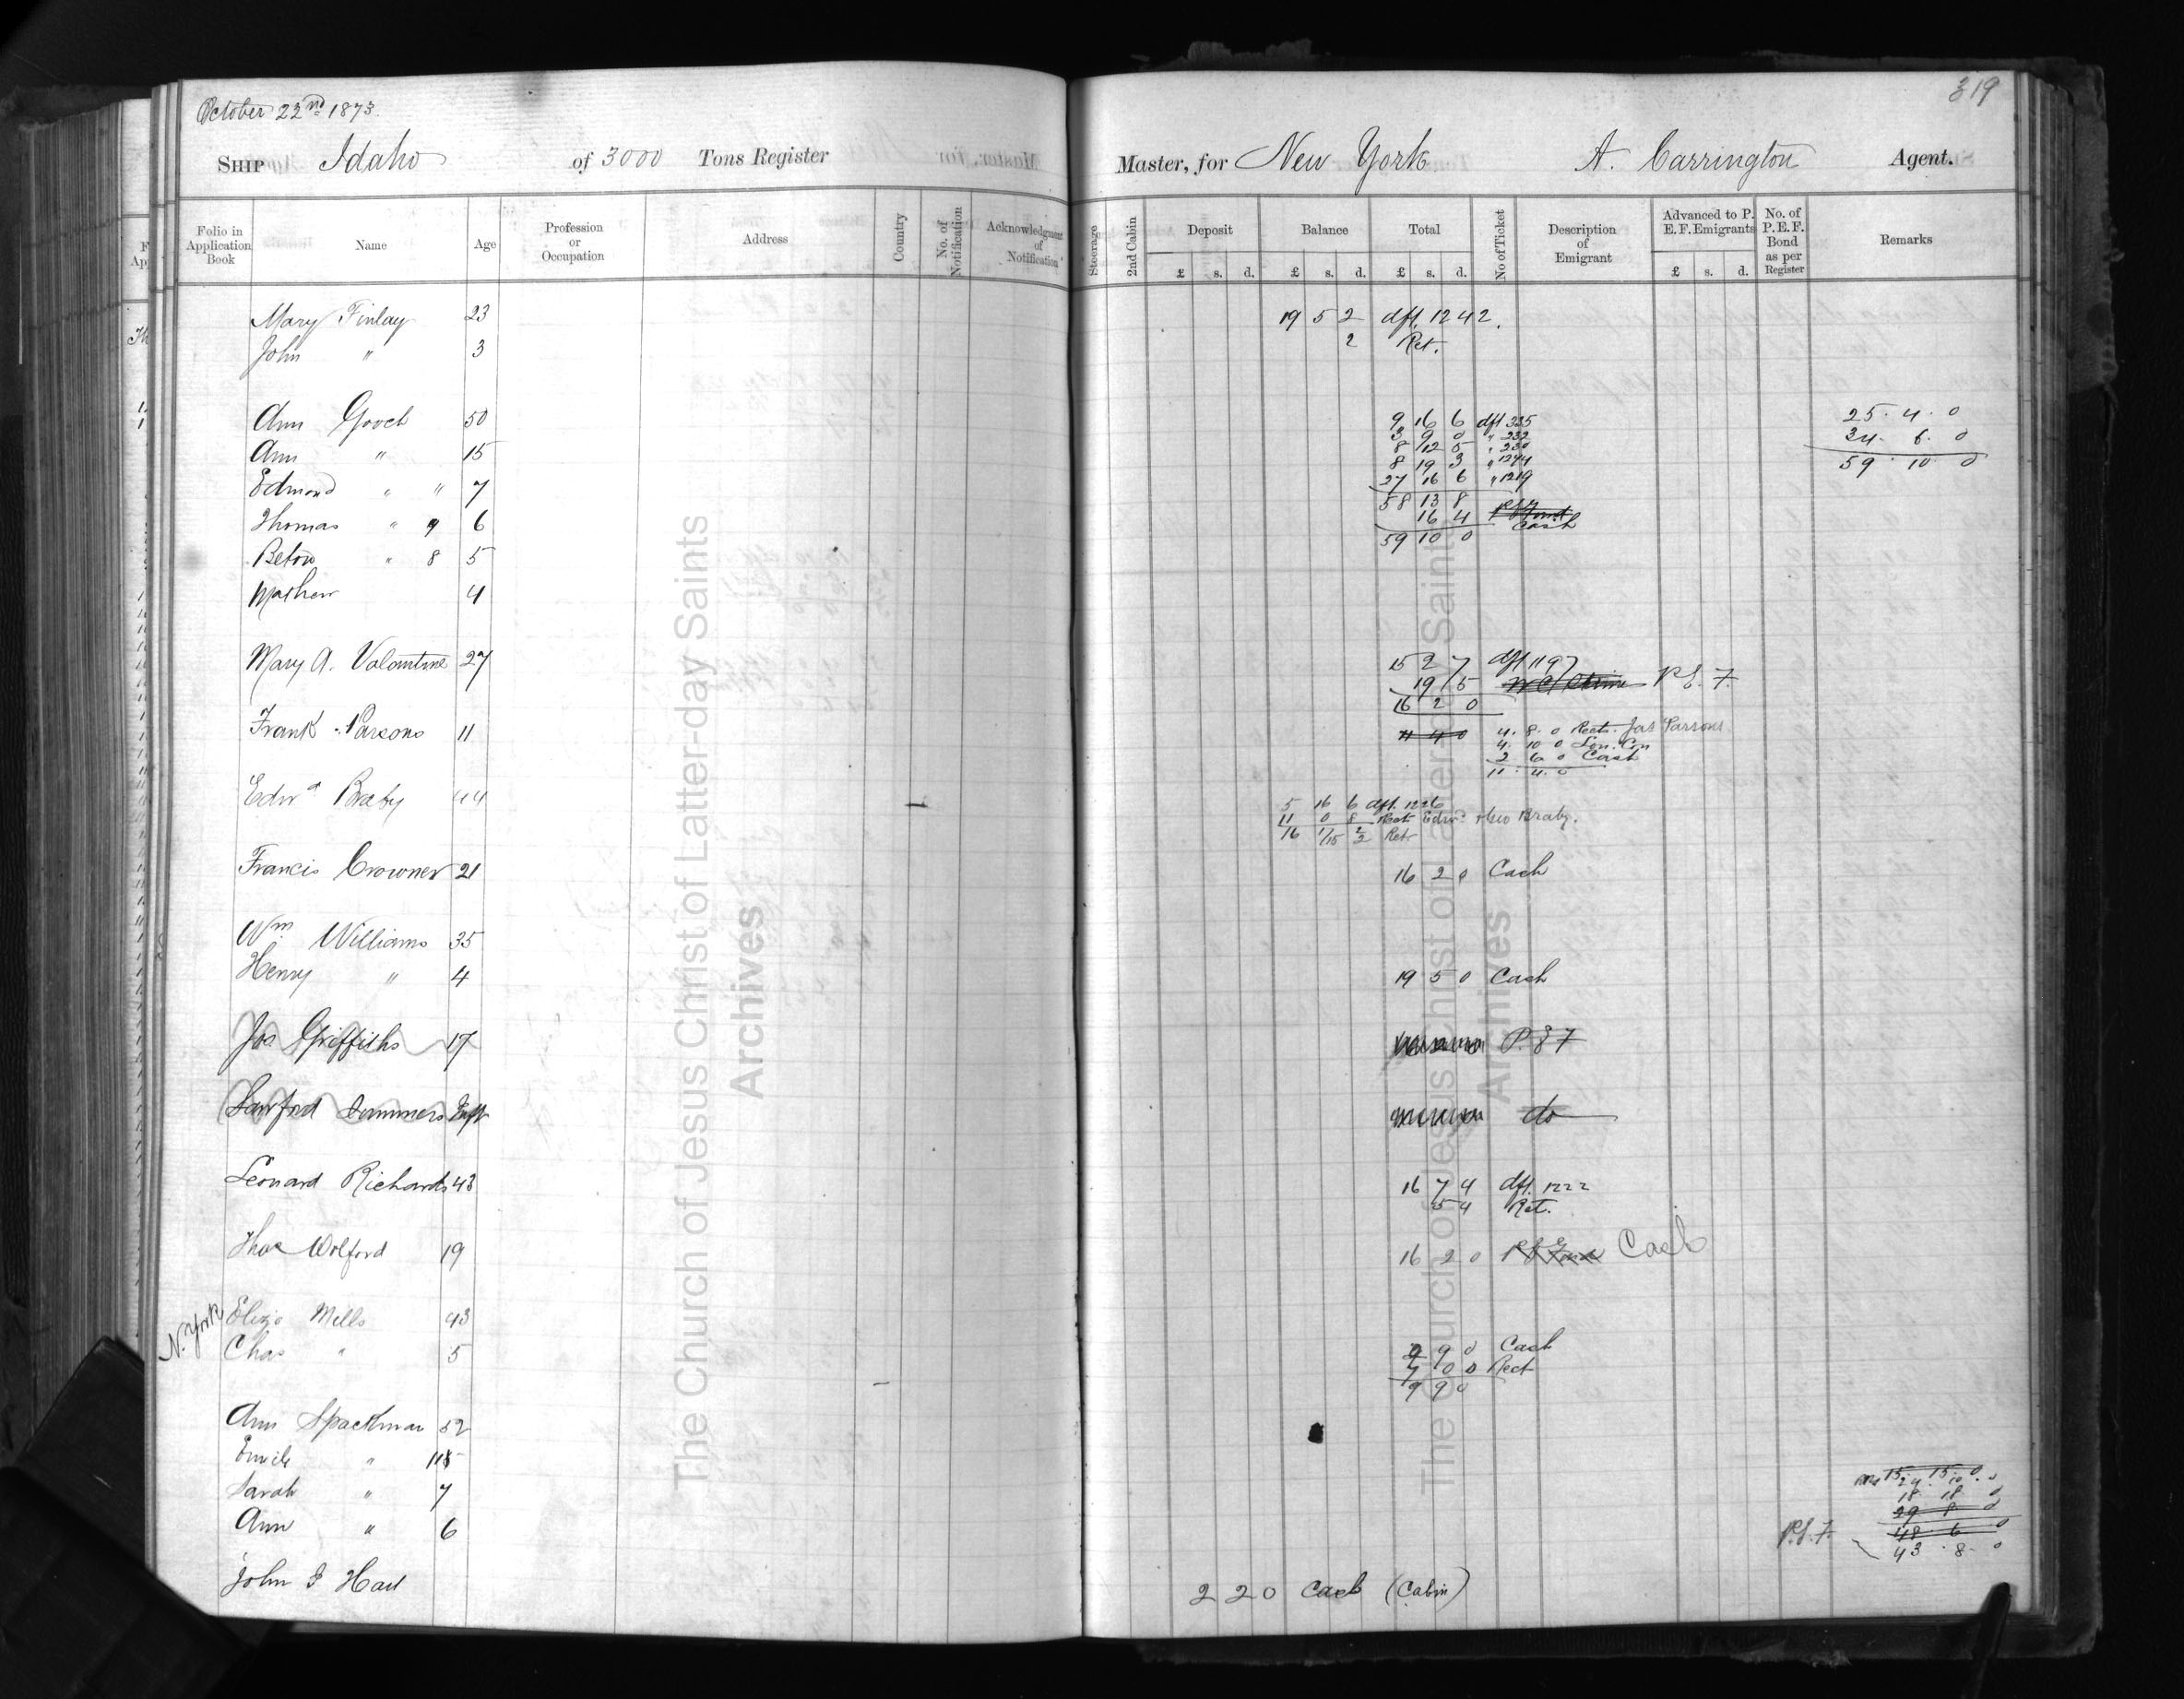 October 22nd 1873.
319
SHIP Idaho of 3000 Tons Register Master, for New York A. Carrington Agent.
Folio in Application Book Name Age Profession or Occupation Address Country No. of Notification Acknowledgment of Notification Steerage 2nd Cabin Deposit Balance Total No of Ticket Description of Emigrant Advanced to P. E. F. Emigrants No. of P.E.F. Bond as per Register Remarks
£ s. d. £ s. d. £ s. d. £ s. d.
Mary Finlay 23 19 5 2 dft. 1242.
John " 3 2 Ret.
Ann Gooch 50 9 16 6 dft 335 25. 4. 0
Ann " 15 3 9 0 " 232 34. 6. 0
8 12 5 " 230 59. 10. 0
8 19 3 " 1244
Edmond " " 7 27 16 6 " 1219
58 13 8
Thomas " 9 6 16 4 Cash
59 10 0
" 8 5
Mathew 4
Mary A. Valentine 27 15 2 7 dft 1197
19 5 P. E. F.
16 2 0
Frank Parsons 11 11 4 0 4. 8. 0 Rects. Jas Parsons
4. 10 0 Lon. Con
2 6 0 Cash
11. 4. 0
Edwd Braby 44 5 16 6 dft. 1226
11 0 8 Rect Edwd Braby.
16 17 2
15 2 Ret.
Francis Crowner 21 16 2 0 Cash
Wm Williams 35
Henry " 4 19 5 0 Cash
Jos Griffiths 17 P. E F
Summers Inft do
Leonard Richards 43 16 7 4 dft. 1222
5 4 Ret.
Thos Wolford 19 16 2 0 Cash
N. York Eliza Mills 43
Chas " 5 2 9 0 Cash
7 0 0 Rect
9 9 0
Ann Spackman 52
" 15
Sarah " 7 18 18 0
29 8 0
Ann " 6 P.E.F. 48 6 0
43. 8. 0
John I Hart 2 2 0 Cash (Cabin)
The Church of Jesus Christ of Latter-day Saints
Archives
The Church of Jesus Christ of Latter-day Saints
Archives